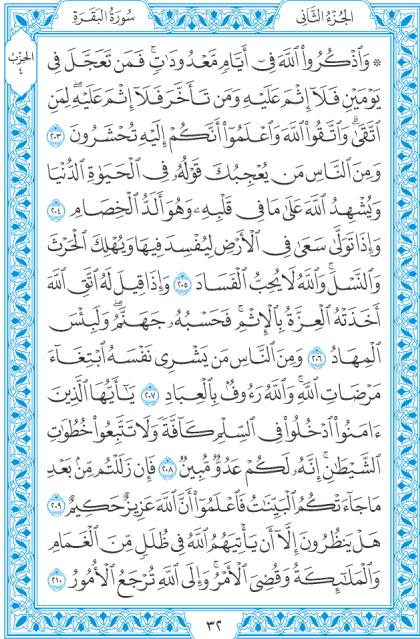 الجُزْءُ الثَّانِي
سُورَةُ البَقَرَةِ
الحِزْبُ
٤
۞ وَٱذْكُرُوا۟ ٱللَّهَ فِىٓ أَيَّامٍ مَّعْدُودَٰتٍ ۚ فَمَن تَعَجَّلَ فِى
يَوْمَيْنِ فَلَآ إِثْمَ عَلَيْهِ وَمَن تَأَخَّرَ فَلَآ إِثْمَ عَلَيْهِ ۚ لِمَنِ
ٱتَّقَىٰ ۗ وَٱتَّقُوا۟ ٱللَّهَ وَٱعْلَمُوٓا۟ أَنَّكُمْ إِلَيْهِ تُحْشَرُونَ ٢٠٣
وَمِنَ ٱلنَّاسِ مَن يُعْجِبُكَ قَوْلُهُۥ فِى ٱلْحَيَوٰةِ ٱلدُّنْيَا
وَيُشْهِدُ ٱللَّهَ عَلَىٰ مَا فِى قَلْبِهِۦ وَهُوَ أَلَدُّ ٱلْخِصَامِ ٢٠٤
وَإِذَا تَوَلَّىٰ سَعَىٰ فِى ٱلْأَرْضِ لِيُفْسِدَ فِيهَا وَيُهْلِكَ ٱلْحَرْثَ
وَٱلنَّسْلَ ۗ وَٱللَّهُ لَا يُحِبُّ ٱلْفَسَادَ ٢٠٥ وَإِذَا قِيلَ لَهُ ٱتَّقِ ٱللَّهَ
أَخَذَتْهُ ٱلْعِزَّةُ بِٱلْإِثْمِ ۚ فَحَسْبُهُۥ جَهَنَّمُ ۚ وَلَبِئْسَ
ٱلْمِهَادُ ٢٠٦ وَمِنَ ٱلنَّاسِ مَن يَشْرِى نَفْسَهُ ٱبْتِغَآءَ
مَرْضَاتِ ٱللَّهِ ۗ وَٱللَّهُ رَءُوفٌۢ بِٱلْعِبَادِ ٢٠٧ يَٰٓأَيُّهَا ٱلَّذِينَ
ءَامَنُوا۟ ٱدْخُلُوا۟ فِى ٱلسِّلْمِ كَآفَّةً وَلَا تَتَّبِعُوا۟ خُطُوَٰتِ
ٱلشَّيْطَٰنِ ۚ إِنَّهُۥ لَكُمْ عَدُوٌّ مُّبِينٌ ٢٠٨ فَإِن زَلَلْتُم مِّنۢ بَعْدِ
مَا جَآءَتْكُمُ ٱلْبَيِّنَٰتُ فَٱعْلَمُوٓا۟ أَنَّ ٱللَّهَ عَزِيزٌ حَكِيمٌ ٢٠٩
هَلْ يَنظُرُونَ إِلَّآ أَن يَأْتِيَهُمُ ٱللَّهُ فِى ظُلَلٍ مِّنَ ٱلْغَمَامِ
وَٱلْمَلَٰٓئِكَةُ وَقُضِىَ ٱلْأَمْرُ ۚ وَإِلَى ٱللَّهِ تُرْجَعُ ٱلْأُمُورُ ٢١٠
٣٢